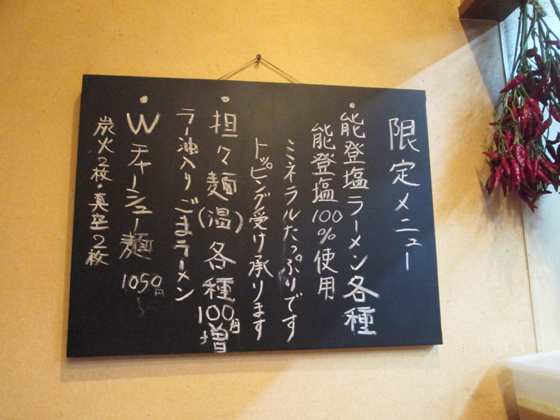 限定メニュー
・能登塩ラーメン各種
能登塩100%使用
ミネラルたっぷりです
トッピング受け承ります
・担々麺(温)各種100円増
ラー油入りごまラーメン
・Wチャーシュー麺 1050円〜
炭火2枚・真空2枚